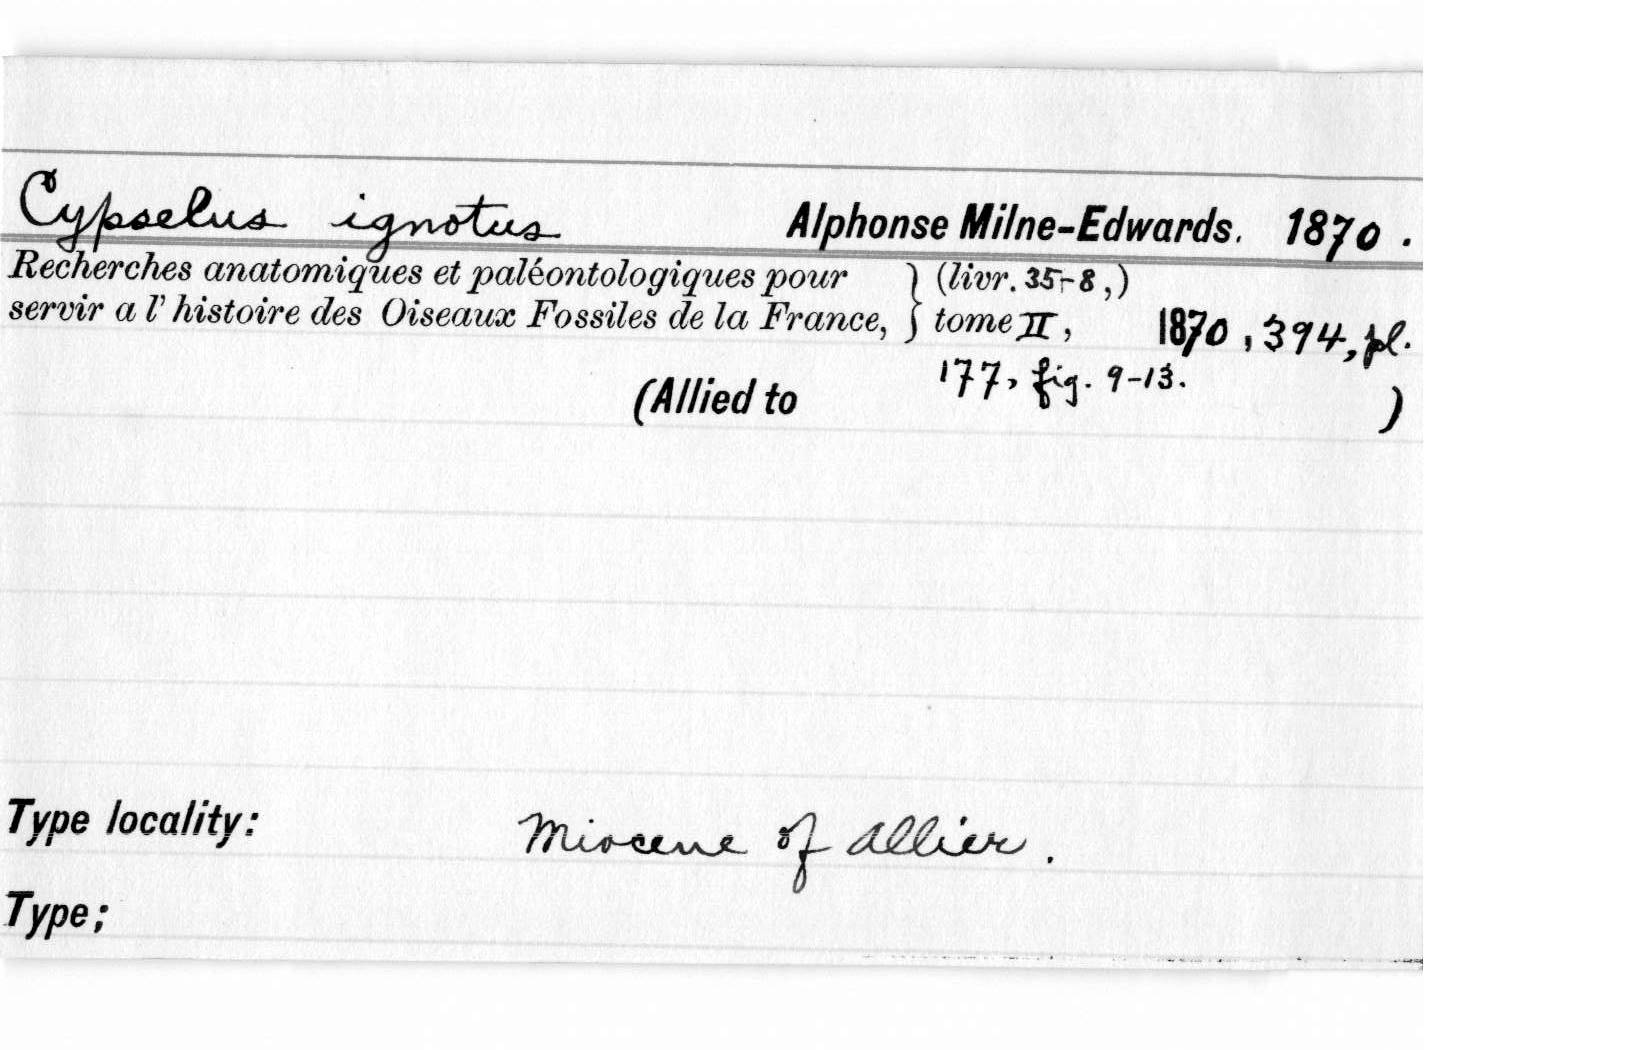 Cypselus ignotus Alphonse Milne-Edwards. 1870.
Recherches anatomiques et paléontologiques pour } (livr. 35-8,)
servir a l' histoire des Oiseaux Fossiles de la France, } tome II, 1870, 394, pl.
177, fig. 9-13.
(Allied to )
Type locality: Miocene of Allier.
Type;